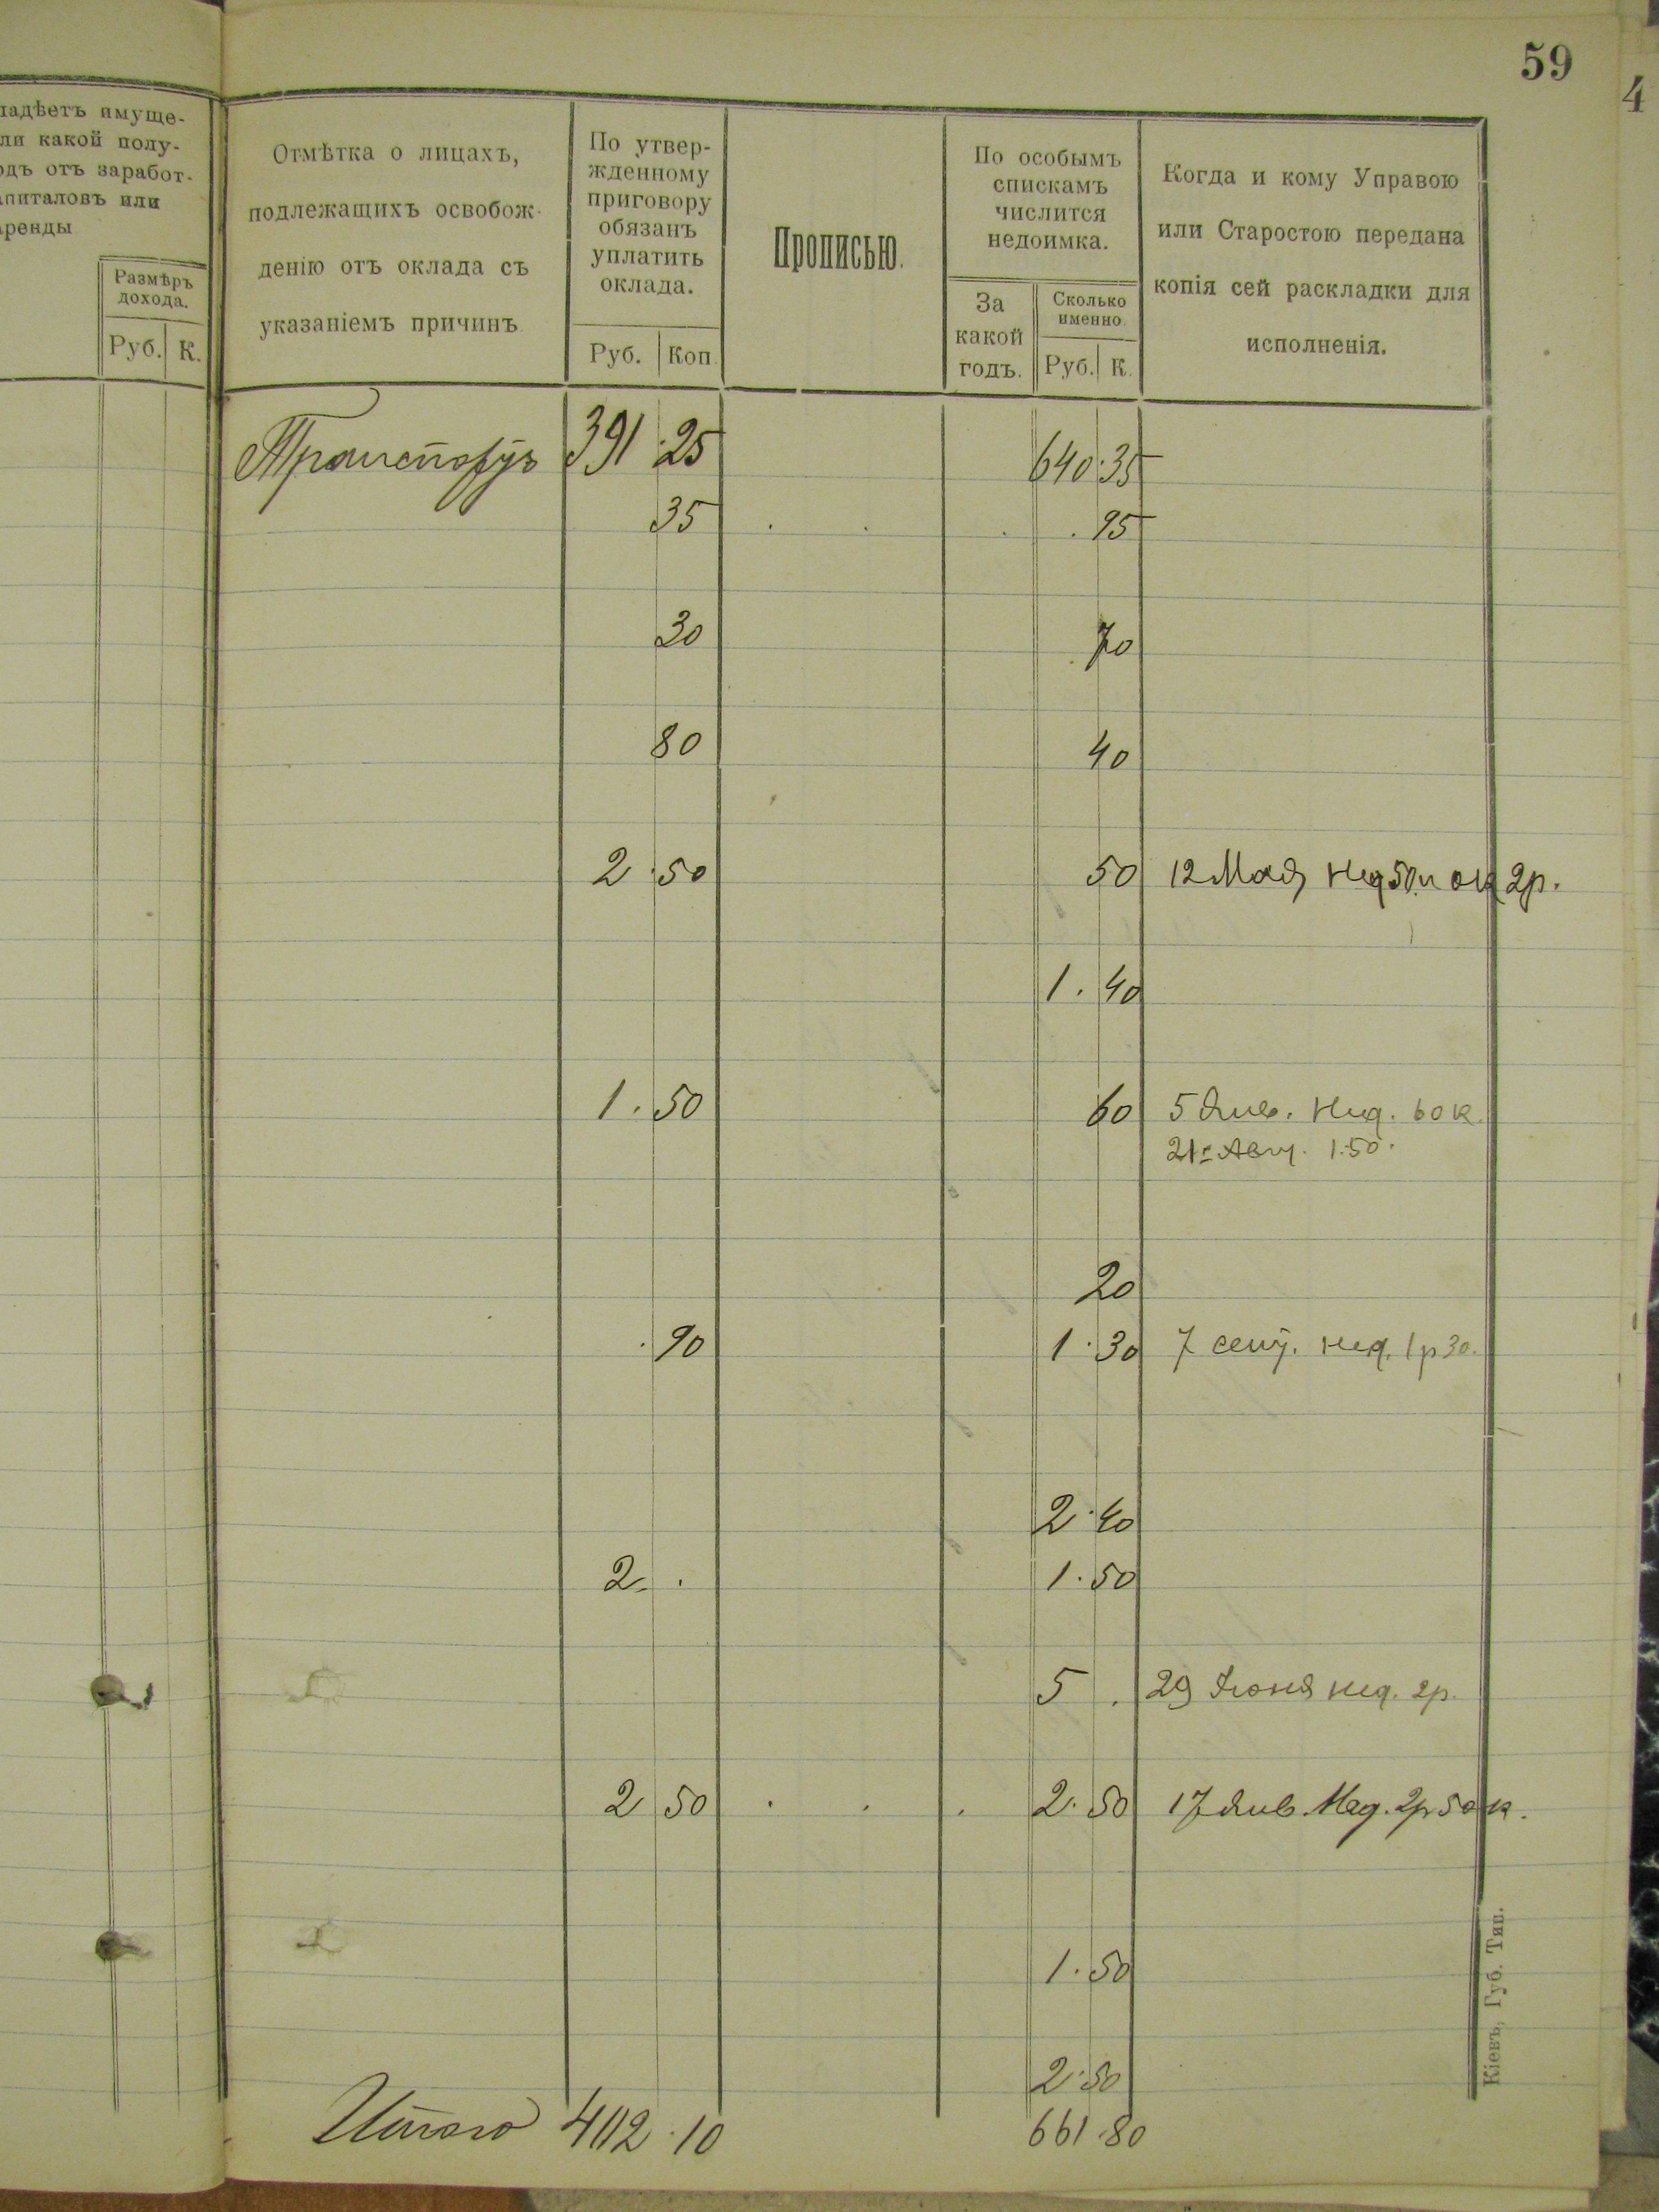 59
4
ладѣетъ имуще-
ли какой полу-
одъ отъ заработ-
апиталовъ или
ренды
Размѣръ
дохода.
Руб. К.
Отмѣтка о лицахъ,
подлежащихъ освобож-
денію отъ оклада съ
указаніемъ причинъ
По утвер-
жденному
приговору
обязанъ
уплатить
оклада.
Руб. Коп.
Прописью.
По особымъ
спискамъ
числится
недоимка.
За
какой
годъ.
Сколько
именно
Руб. К.
Когда и кому Управою
или Старостою передана
копія сей раскладки для
исполненія.
391 25 640.35
35 95
30 70
80 40
2 50 50 12 Мая нед 50 и ок 2р.
1.40
1.50 60 5 Янв. Нед. 60 к.
21го Авг. 1.50.
20
90 1.30 7 сент. нед. 1р 30.
2.40
2. 1.50
5 29 Іюня нед. 2р.
2 50 2.50 17 Янв. Нед. 2р 50 к.
1.50
2.50
Итого 402.10 661.80
Кіевъ, Губ. Тип.